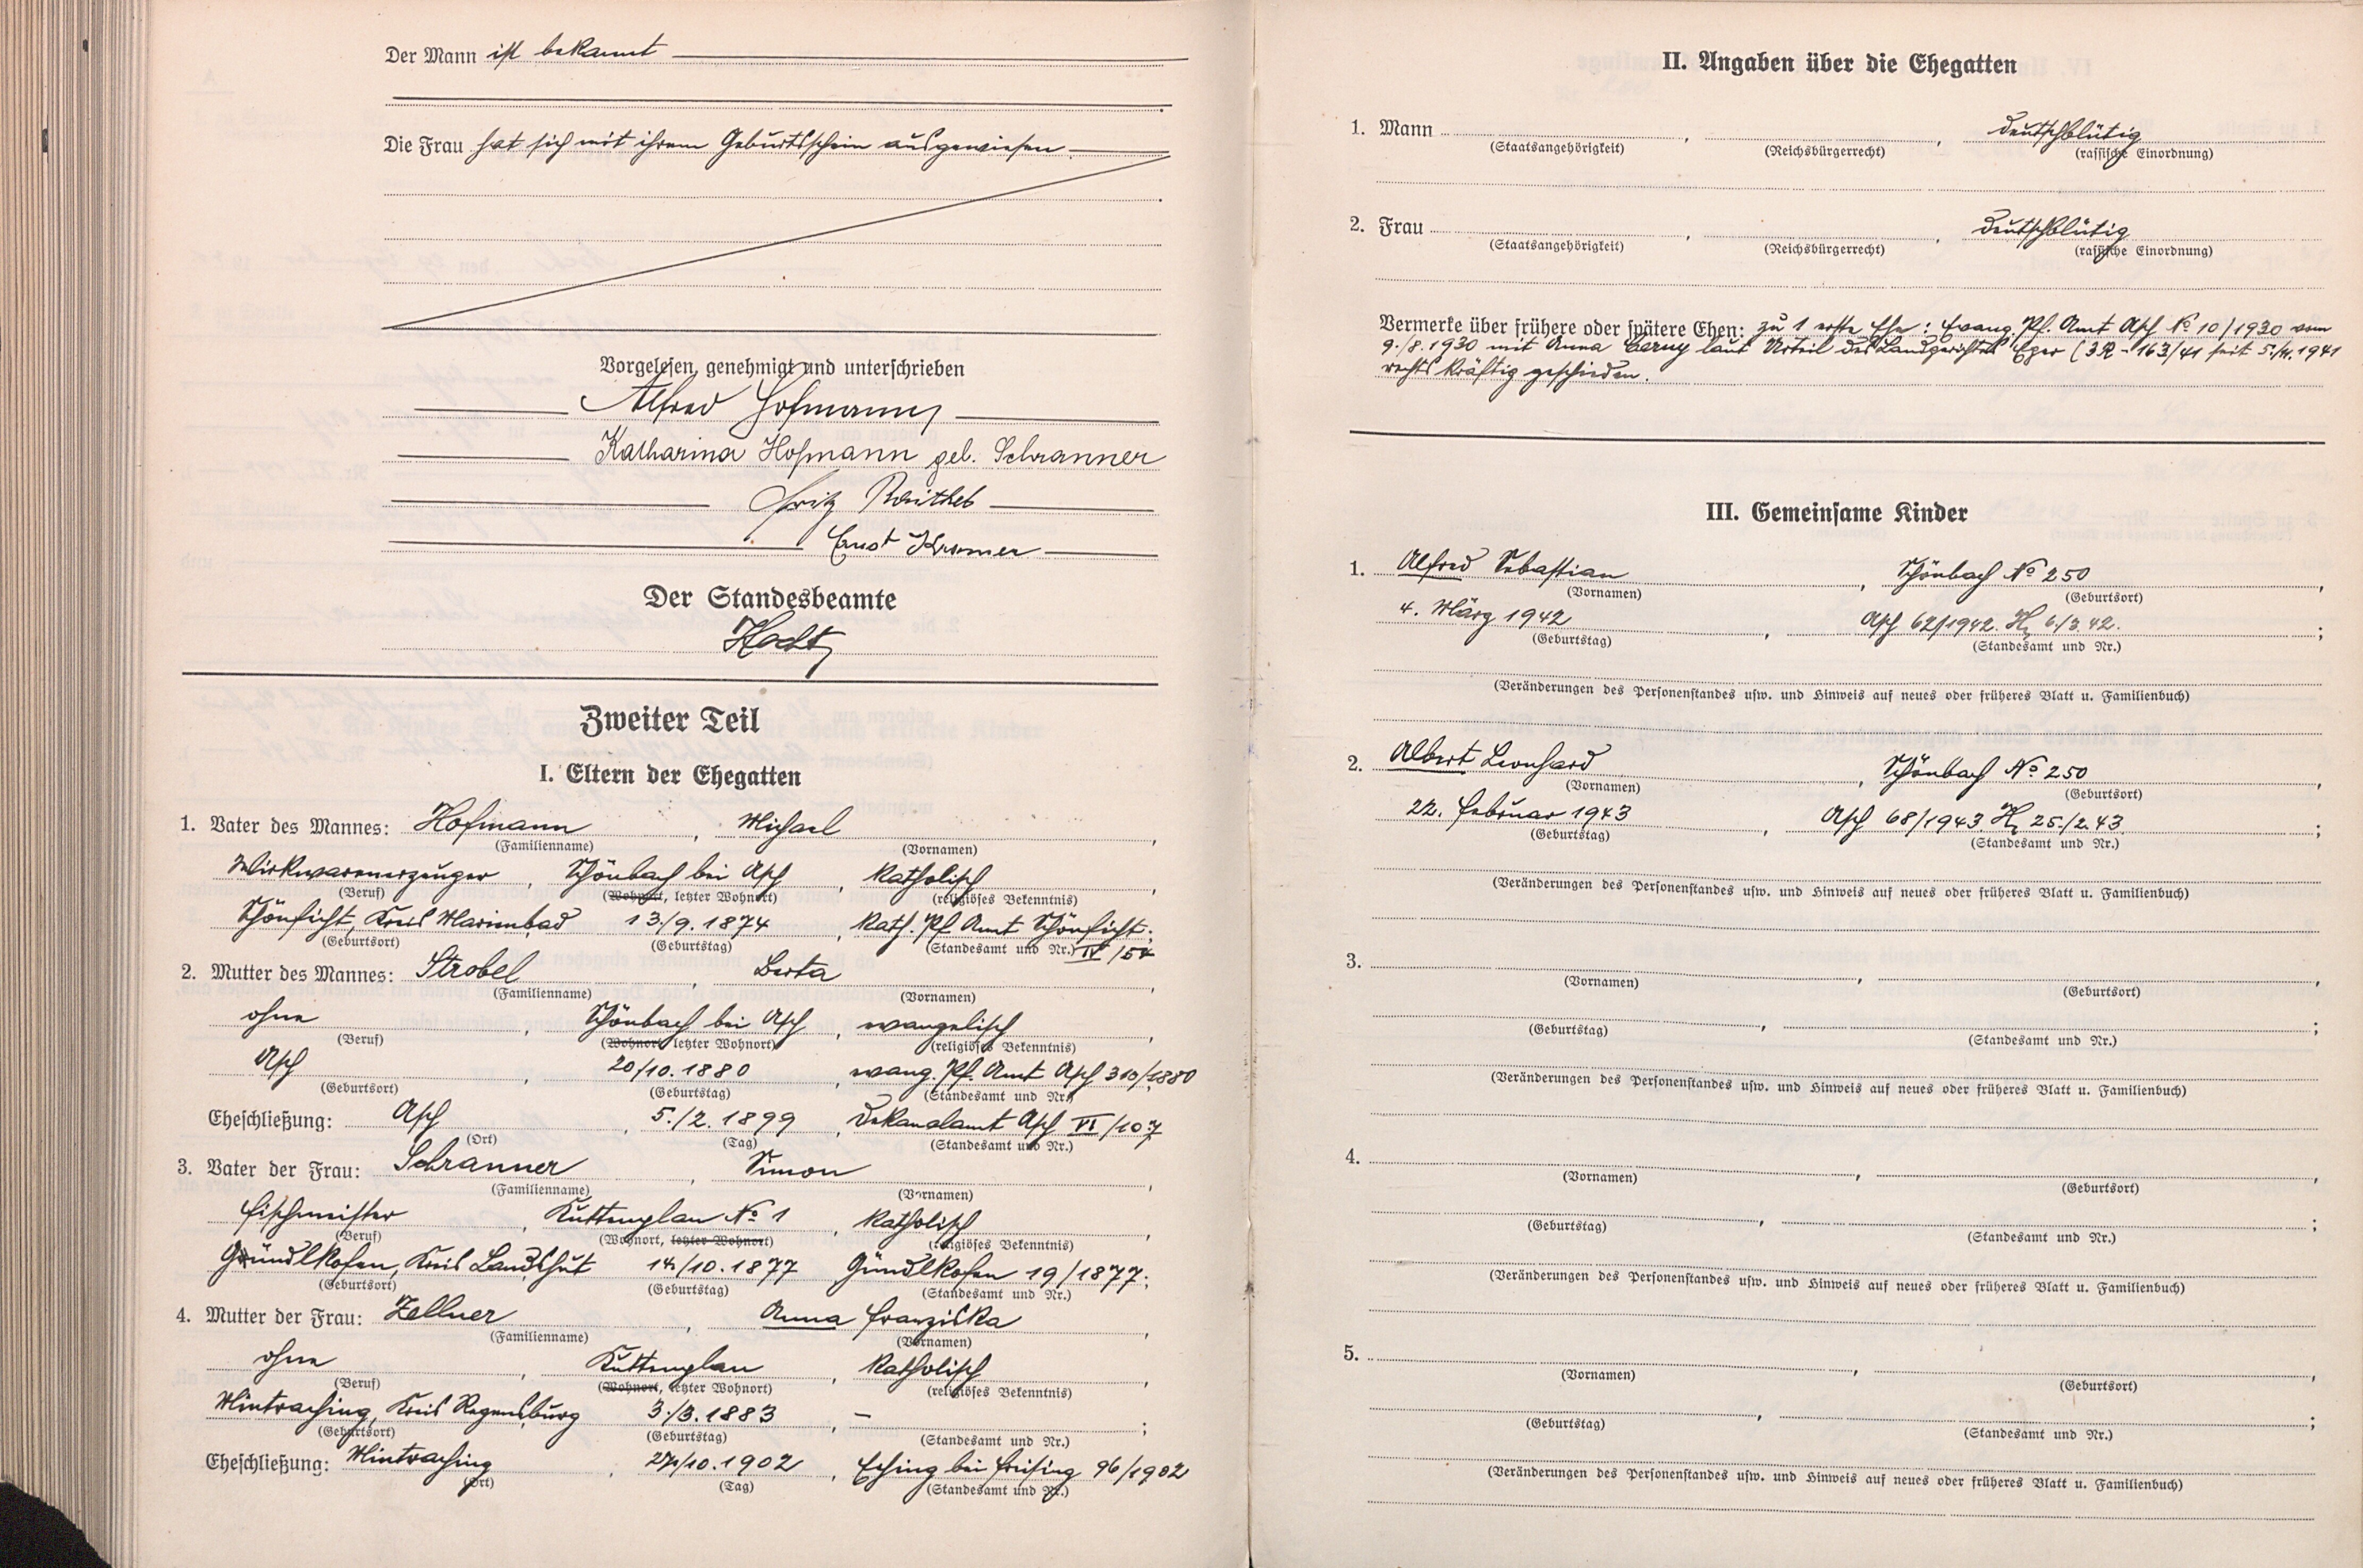 Der Mann ist bekannt
Die Frau hat sich mit ihrem Geburtsschein ausgewiesen.
Vorgelesen, genehmigt und unterschrieben
Alfred Hofmann
Katharina Hofmann geb. Schranner
Fritz
Ernst
Der Standesbeamte
Zweiter Teil
I. Eltern der Ehegatten
1. Vater des Mannes: Hofmann, Michael,
(Familienname) (Vornamen)
Wirkwarenerzeuger, Schönbach bei Asch, katholisch,
(Beruf) (Wohnort, letzter Wohnort) (religiöses Bekenntnis)
Schönficht, Kreis Marienbad 13./9. 1874, kath. Pf. Amt Schönficht;
(Geburtsort) (Geburtstag) (Standesamt und Nr.) IV/54
2. Mutter des Mannes: Strobel, Berta,
(Familienname) (Vornamen)
ohne, Schönbach bei Asch, evangelisch,
(Beruf) (Wohnort, letzter Wohnort) (religiöses Bekenntnis)
Asch, 20/10. 1880, evang. Pf. Amt Asch 310/1880
(Geburtsort) (Geburtstag) (Standesamt und Nr.)
Eheschließung: Asch, 5./2. 1899, Dekanalamt Asch VI/107
(Ort) (Tag) (Standesamt und Nr.)
3. Vater der Frau: Schranner, Simon,
(Familienname) (Vornamen)
Fischmeister, Kuttenplan No 1, katholisch,
(Beruf) (Wohnort, letzter Wohnort) (religiöses Bekenntnis)
Gündlkofen, Kreis Landshut 14./10. 1877 Gündlkofen 19/1877;
(Geburtsort) (Geburtstag) (Standesamt und Nr.)
4. Mutter der Frau: Zellner, Anna Franziska,
(Familienname) (Vornamen)
ohne, Kuttenplan, katholisch,
(Beruf) (Wohnort, letzter Wohnort) (religiöses Bekenntnis)
Mintraching, Kreis Regensburg 3./3. 1883, – ;
(Geburtsort) (Geburtstag) (Standesamt und Nr.)
Eheschließung: Mintraching, 27./10. 1902, Eching bei Freising 96/1902
(Ort) (Tag) (Standesamt und Nr.)
II. Angaben über die Ehegatten
1. Mann , , deutschblütig
(Staatsangehörigkeit) (Reichsbürgerrecht) (rassische Einordnung)
2. Frau , , deutschblütig
(Staatsangehörigkeit) (Reichsbürgerrecht) (rassische Einordnung)
Vermerke über frühere oder spätere Ehen: zu 1 erste Ehe: Evang. Pf. Amt Asch No 10/1930 vom
9./8. 1930 mit Anna Cerny laut Urteil des Landgerichtes Eger (3R-163/41 seit 5./11. 1941
rechtskräftig geschieden.
III. Gemeinsame Kinder
1. Alfred Sebastian, Schönbach No 250,
(Vornamen) (Geburtsort)
4. März 1942, Asch 62/1942. 6./3. 42. ;
(Geburtstag) (Standesamt und Nr.)
(Veränderungen des Personenstandes usw. und Hinweis auf neues oder früheres Blatt u. Familienbuch)
2. Albert Leonhard, Schönbach No 250,
(Vornamen) (Geburtsort)
22. Februar 1943, Asch 68/1943 25./2. 43. ;
(Geburtstag) (Standesamt und Nr.)
(Veränderungen des Personenstandes usw. und Hinweis auf neues oder früheres Blatt u. Familienbuch)
3. , ,
(Vornamen) (Geburtsort)
, ;
(Geburtstag) (Standesamt und Nr.)
(Veränderungen des Personenstandes usw. und Hinweis auf neues oder früheres Blatt u. Familienbuch)
4. , ,
(Vornamen) (Geburtsort)
, ;
(Geburtstag) (Standesamt und Nr.)
(Veränderungen des Personenstandes usw. und Hinweis auf neues oder früheres Blatt u. Familienbuch)
5. , ,
(Vornamen) (Geburtsort)
, ;
(Geburtstag) (Standesamt und Nr.)
(Veränderungen des Personenstandes usw. und Hinweis auf neues oder früheres Blatt u. Familienbuch)